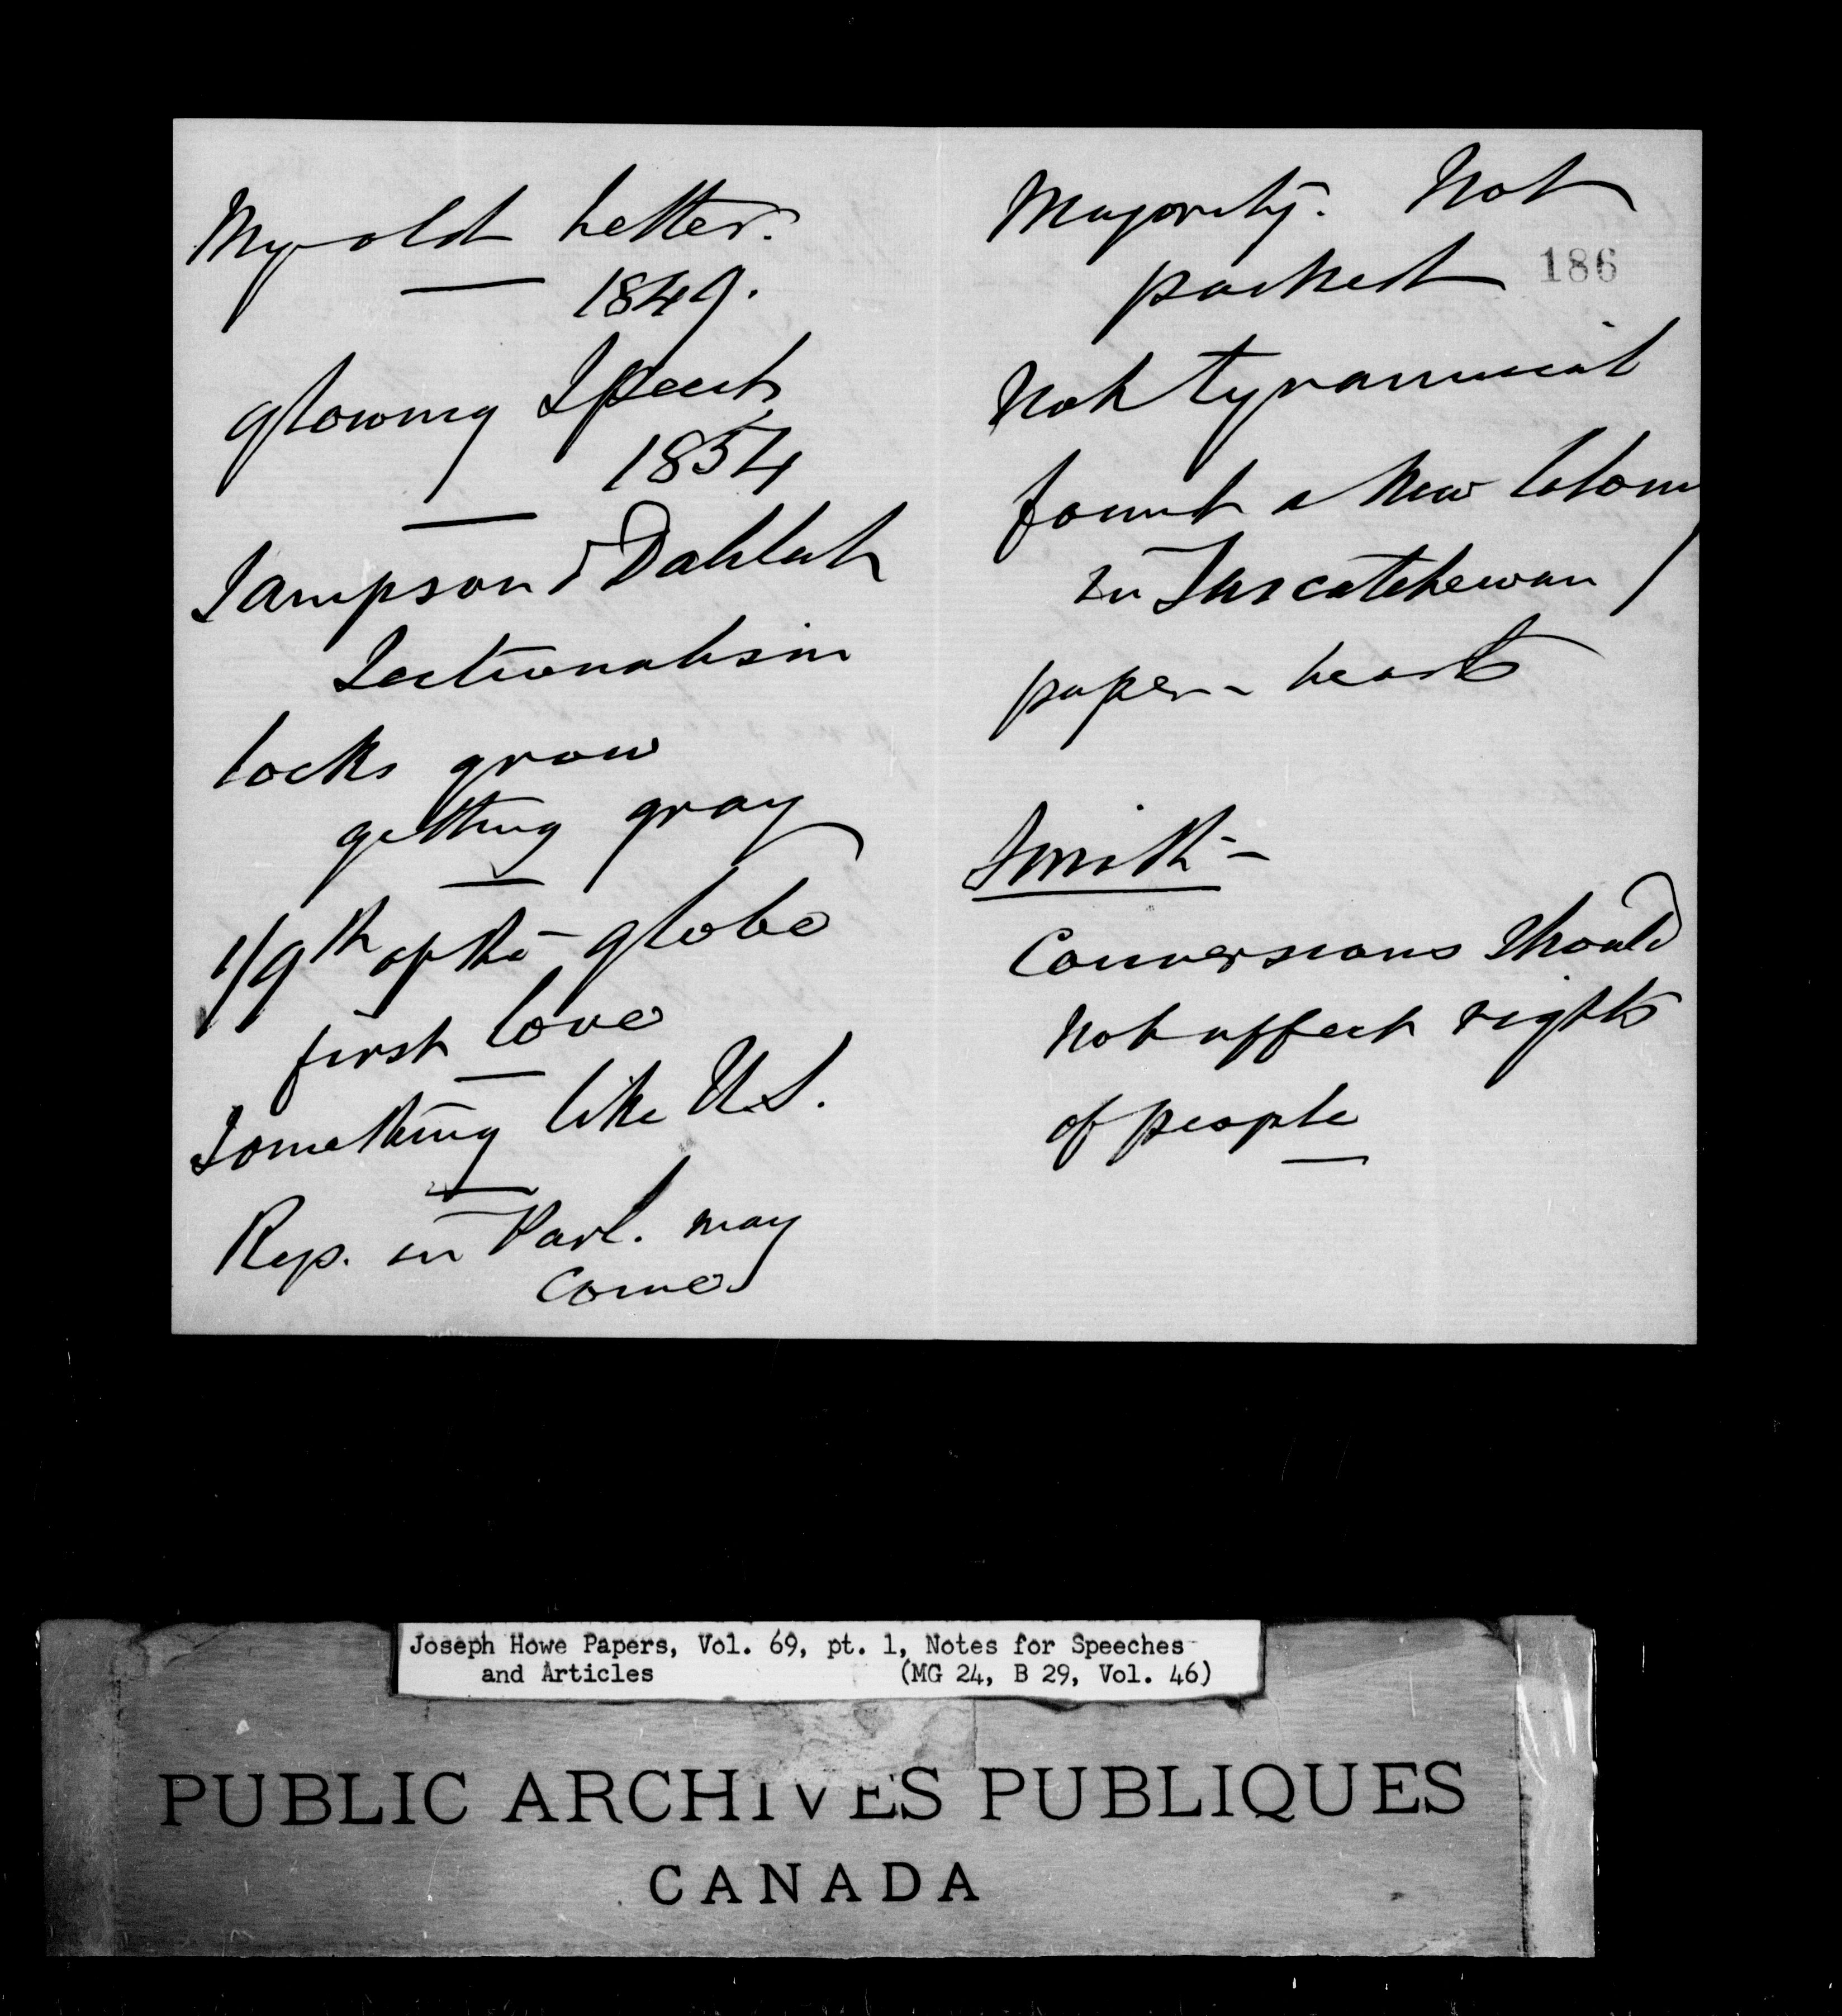 My old Letter.
1849.
glowing Speech
1854
Sampson & Dahlah
Sectionalism
locks grow
getting gray
1/9th of the globe
first love
Something like U.S.
Rep. in Parl. may
come
Majority. Not
packed
186
Not tyrannical
found a New Colony
in Sascatchewan
paper - hearts
Smith -
Conversions should
not affect rights
of people
Joseph Howe Papers, Vol. 69, pt. 1, Notes for Speeches
and Articles (MG 24, B 29, Vol. 46)
PUBLIC ARCHIVES PUBLIQUES
CANADA